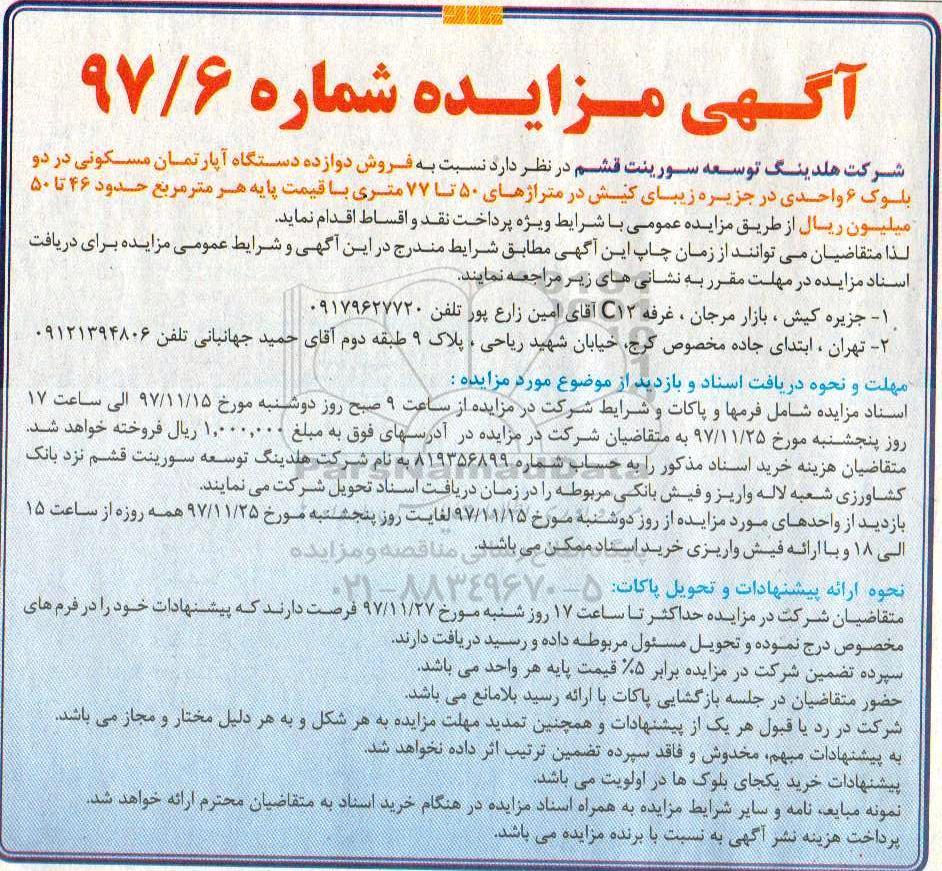 آگهی مزایده شماره ۹۷/۶
شرکت هلدینگ توسعه سورینت قشم در نظر دارد نسبت به فروش دوازده دستگاه آپارتمان مسکونی در دو
بلوک ۶ واحدی در جزیره زیبای کیش در متراژهای ۵۰ تا ۷۷ متری با قیمت پایه هر مترمربع حدود ۴۶ تا ۵۰
میلیون ریال از طریق مزایده عمومی با شرایط ویژه پرداخت نقد و اقساط اقدام نماید.
لذا متقاضیان می توانند از زمان چاپ این آگهی مطابق شرایط مندرج در این آگهی و شرایط عمومی مزایده برای دریافت
اسناد مزایده در مهلت مقرر به نشانی های زیر مراجعه نمایند.
۱- جزیره کیش ، بازار مرجان ، غرفه C۱۲ آقای امین زارع پور تلفن ۰۹۱۷۹۶۲۷۷۲۰
۲- تهران ، ابتدای جاده مخصوص کرج، خیابان شهید ریاحی ، پلاک ۹ طبقه دوم آقای حمید جهانبانی تلفن ۰۹۱۲۱۳۹۴۸۰۶
مهلت و نحوه دریافت اسناد و بازدید از موضوع مورد مزایده :
اسناد مزایده شامل فرمها و پاکات و شرایط شرکت در مزایده از ساعت ۹ صبح روز دوشنبه مورخ ۹۷/۱۱/۱۵ الی ساعت ۱۷
روز پنجشنبه مورخ ۹۷/۱۱/۲۵ به متقاضیان شرکت در مزایده در آدرسهای فوق به مبلغ ۱,۰۰۰,۰۰۰ ریال فروخته خواهد شد.
متقاضیان هزینه خرید اسناد مذکور را به حساب شماره ۸۱۹۳۵۶۸۹۹ به نام شرکت هلدینگ توسعه سورینت قشم نزد بانک
کشاورزی شعبه لاله واریز و فیش بانکی مربوطه را در زمان دریافت اسناد تحویل شرکت می نمایند.
بازدید از واحدهای مورد مزایده از روز دوشنبه مورخ ۹۷/۱۱/۱۵ لغایت روز پنجشنبه مورخ ۹۷/۱۱/۲۵ همه روزه از ساعت ۱۵
الی ۱۸ و با ارائه فیش واریزی خرید اسناد ممکن می باشد.
پایگاه اطلاع رسانی مناقصه و مزایده
ParsNamadData
۰۲۱-۸۸۳۴۹۶۷۰-۵
نحوه ارائه پیشنهادات و تحویل پاکات:
متقاضیان شرکت در مزایده حداکثر تا ساعت ۱۷ روز شنبه مورخ ۹۷/۱۱/۲۷ فرصت دارند که پیشنهادات خود را در فرم های
مخصوص درج نموده و تحویل مسئول مربوطه داده و رسید دریافت دارند.
سپرده تضمین شرکت در مزایده برابر ۵٪ قیمت پایه هر واحد می باشد.
حضور متقاضیان در جلسه بازگشایی پاکات با ارائه رسید بلامانع می باشد.
شرکت در رد یا قبول هر یک از پیشنهادات و همچنین تمدید مهلت مزایده به هر شکل و به هر دلیل مختار و مجاز می باشد.
به پیشنهادات مبهم، مخدوش و فاقد سپرده تضمین ترتیب اثر داده نخواهد شد.
پیشنهادات خرید یکجای بلوک ها در اولویت می باشد.
نمونه مبایعه نامه و سایر شرایط مزایده به همراه اسناد مزایده در هنگام خرید اسناد به متقاضیان محترم ارائه خواهد شد.
پرداخت هزینه نشر آگهی به نسبت با برنده مزایده می باشد.